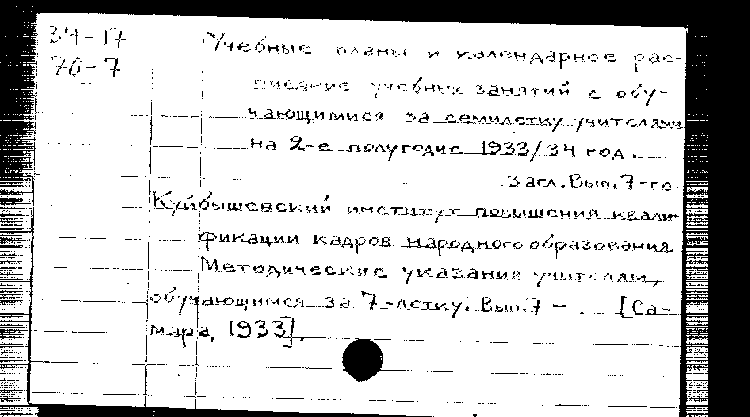 34-17
70-7
Учебные планы и календарное рас-
писание учебных занятий с обу-
чающимися за семилетку учителями
на 2-е полугодие 1933/34 год.
Загл. Вып. 7-го
Куйбышевский институт повышения квали-
фикации кадров народного образования
Методические указания учителям,
обучающимся за 7-летку. Вып. 7 - . [Са-
мара, 1933].